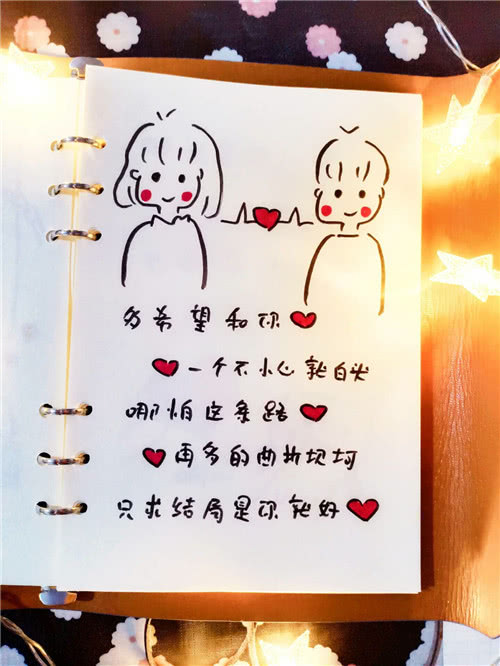 多希望和你
一个不小心就白头
哪怕这条路
再多的曲折坎坷
只求结局是你就好